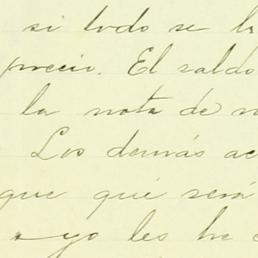 si todo se
precio. El saldo
la nota de
Los demás
que qué será
yo les he